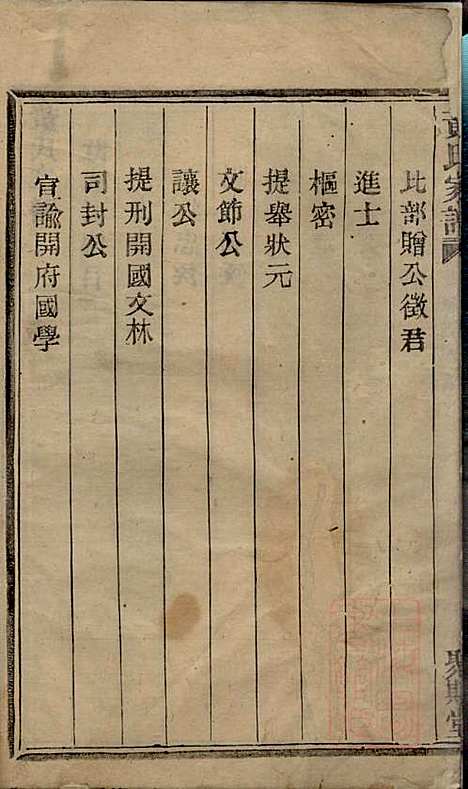 氏家譜
比部贈公徵君
進士
樞密
提舉狀元
文節公
讓公
提刑開國文林
司封公
宣諭開府國學